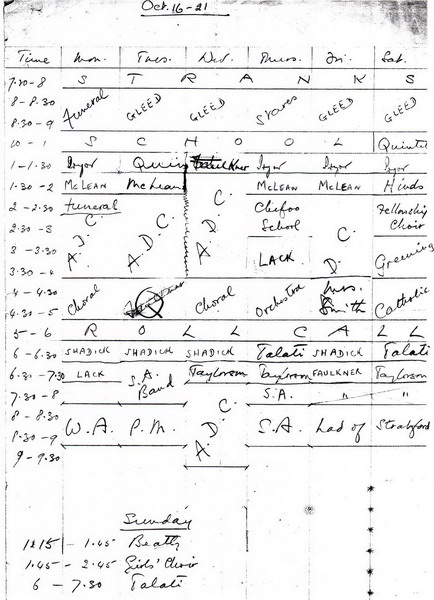 Oct. 16-21
Time Mon. Tues. Wed. Thurs. Fri. Sat.
7.30-8 S T R A N K S
8-8.30 Funeral GLEED GLEED Stares GLEED GLEED
8.30-9
10-1 S C H O O L Quintet
1-1.30 Pryor Quin Pryor Pryor Pryor
1.30-2 McLEAN McLean McLEAN McLEAN Hinds
2-2.30 Funeral A.D.C. A.D.C. Chefoo C.D. Fellowship
2.30-3 A.D.C. School Choir
3-3.30 LACK Greening
3.30-4
4-4.30 Choral Q Choral Orchestra Mrs. Catholic
4.30-5 Smith
5-6 R O L L C A L L
6-6.30 SHADICK SHADICK SHADICK Talati SHADICK Talati
6.30-7.30 LACK S.A. Taylorson Taylorson FAULKNER Taylorson
7.30-8 Band S.A. " "
8-8.30 A.D.C.
8.30-9 W.A. P.M. S.A. Lad of Stratford
9-9.30
Sunday
12.15-1.45 Beatty
1.45-2.45 Girls' Choir
6-7.30 Talati